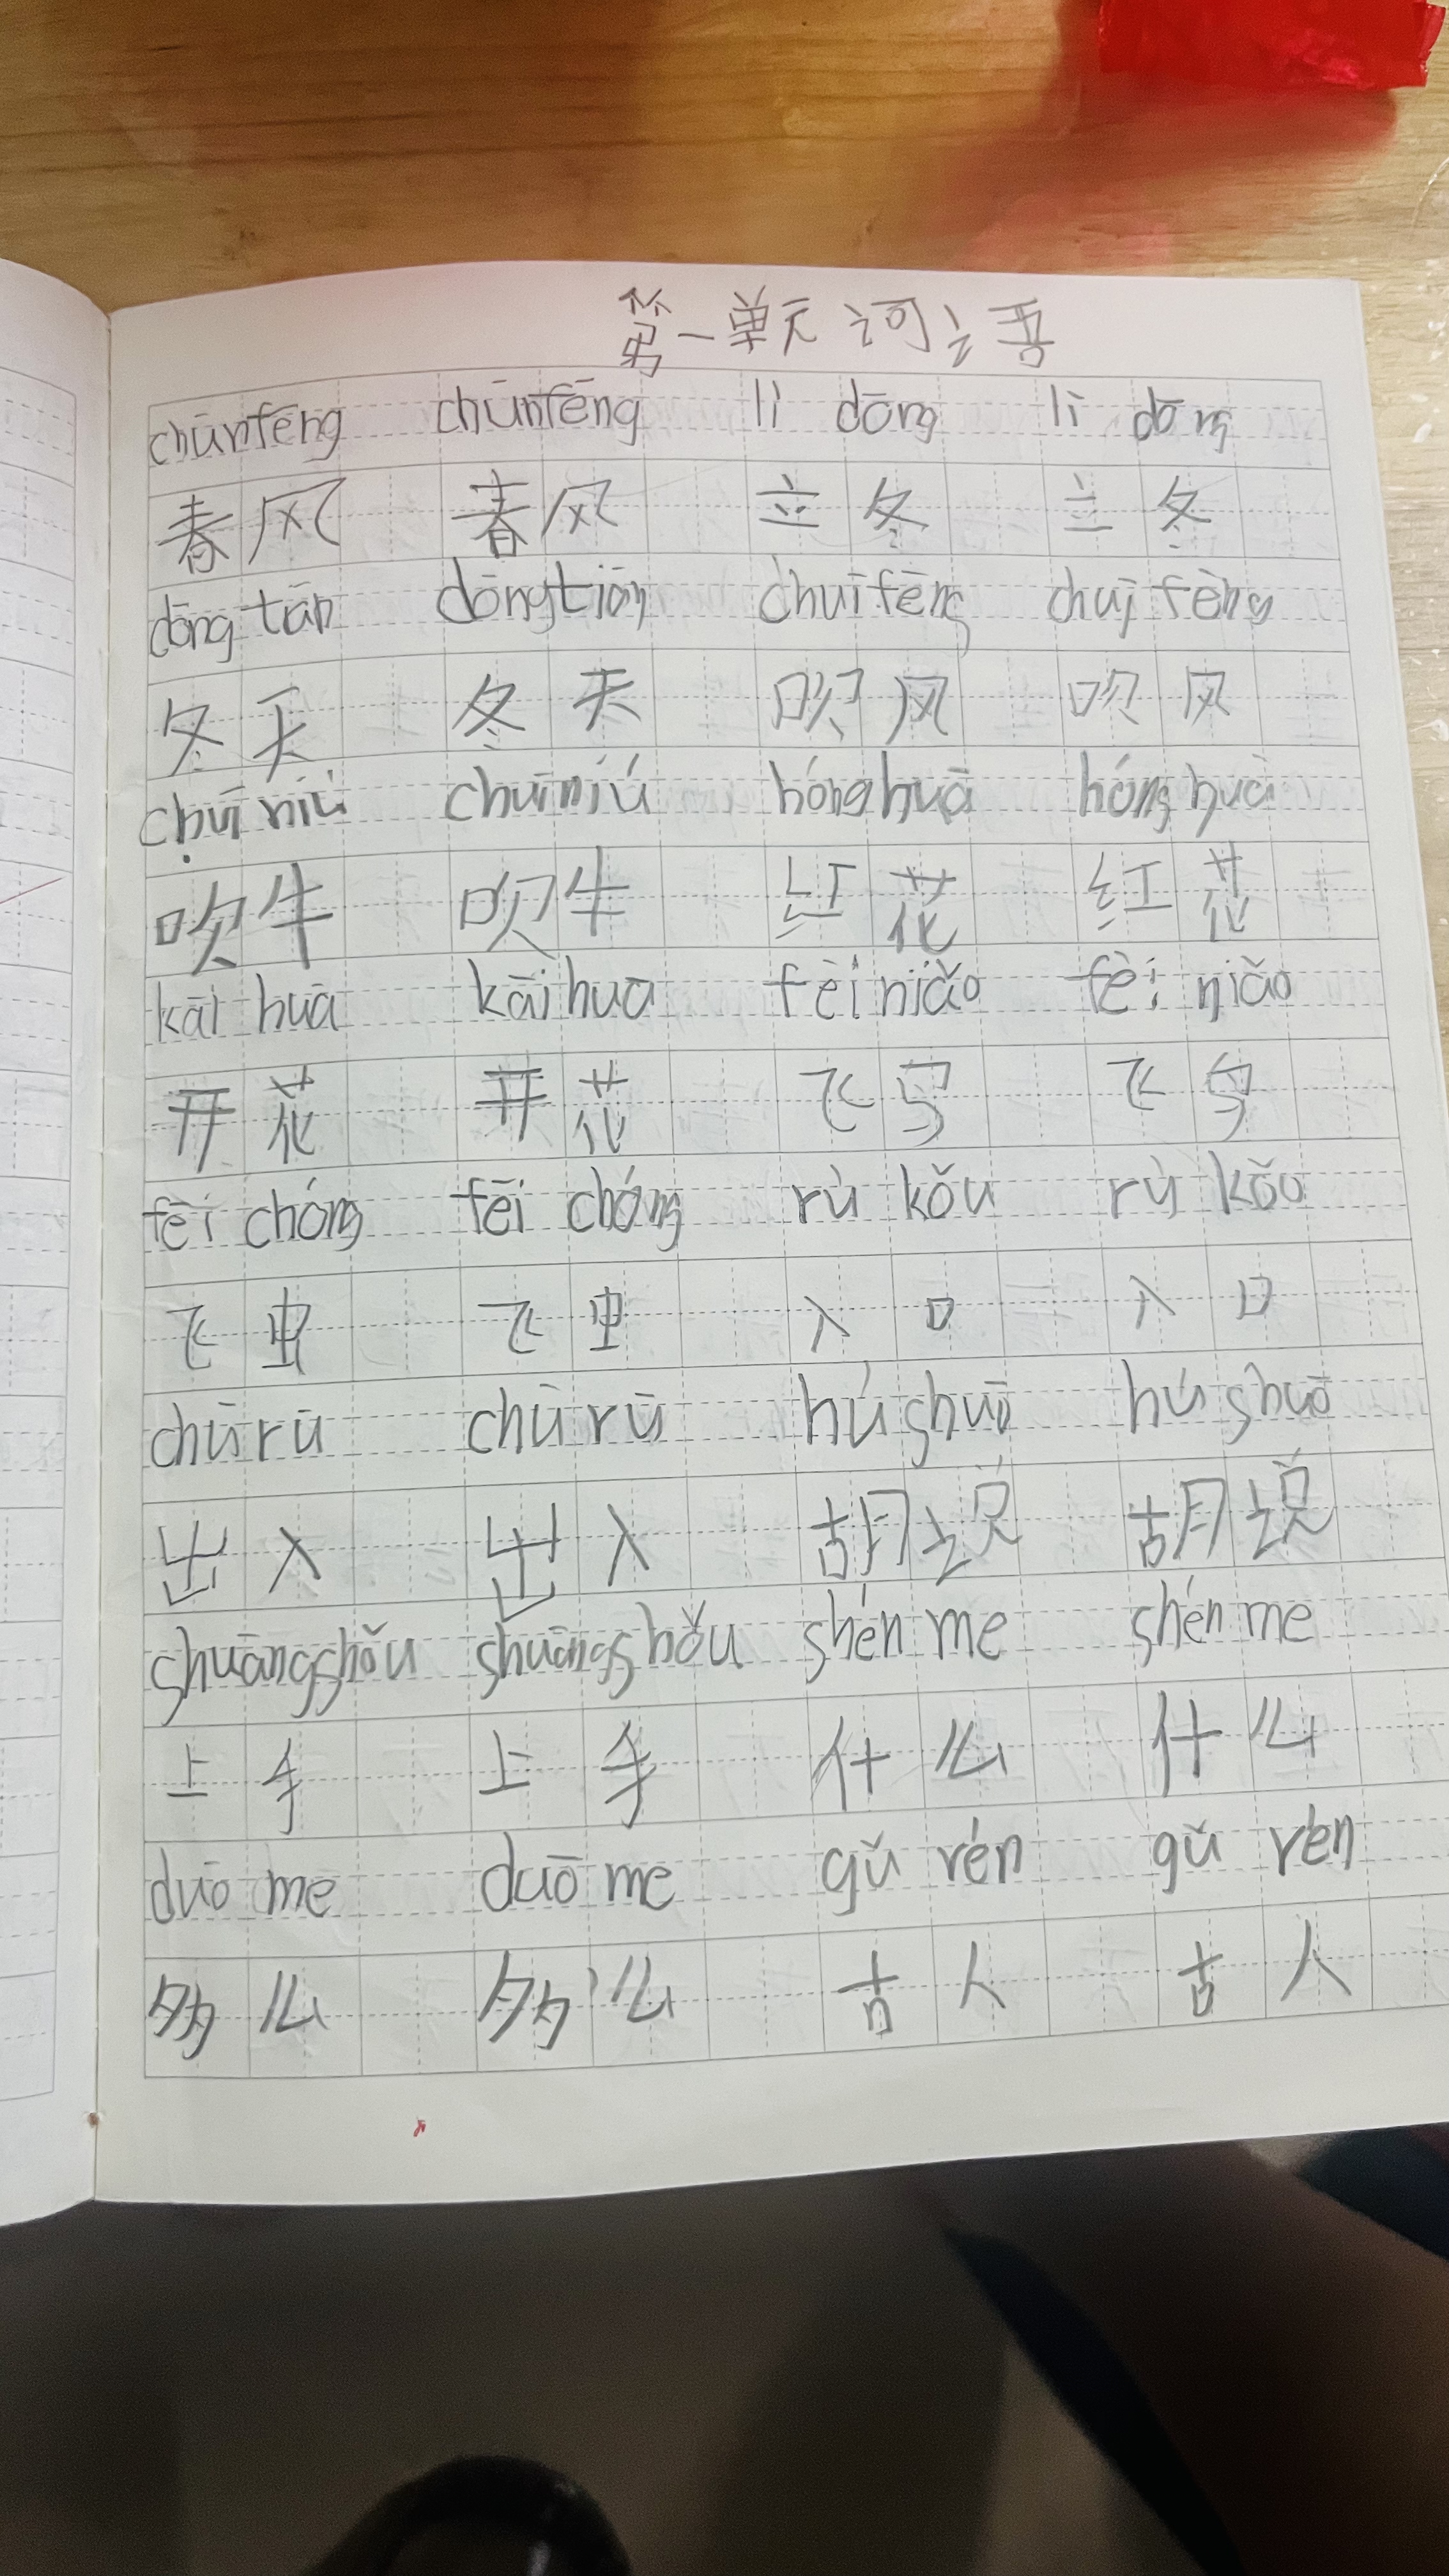 第一单元词语
chūnfēng chūnfēng lì dōng lì dōng
春风 春风 立冬 立冬
dōng tān dōngtiān chuīfēng chuī fēng
冬天 冬天 吹风 吹风
chuī niú chuī niú hónghuā hóng huā
吹牛 吹牛 红花 红花
kāi huā kāi hua fēi niǎo fēi niǎo
开花 开花 飞鸟 飞鸟
fēi chóng fēi chóng rù kǒu rù kǒu
飞虫 飞虫 入口 入口
chū rū chū rū hú shuō hú shuō
出入 出入 胡说 胡说
shuāngshǒu shuāngshǒu shén me shén me
上手 上手 什么 什么
duō me duō me gǔ rén gǔ rén
多么 多么 古人 古人